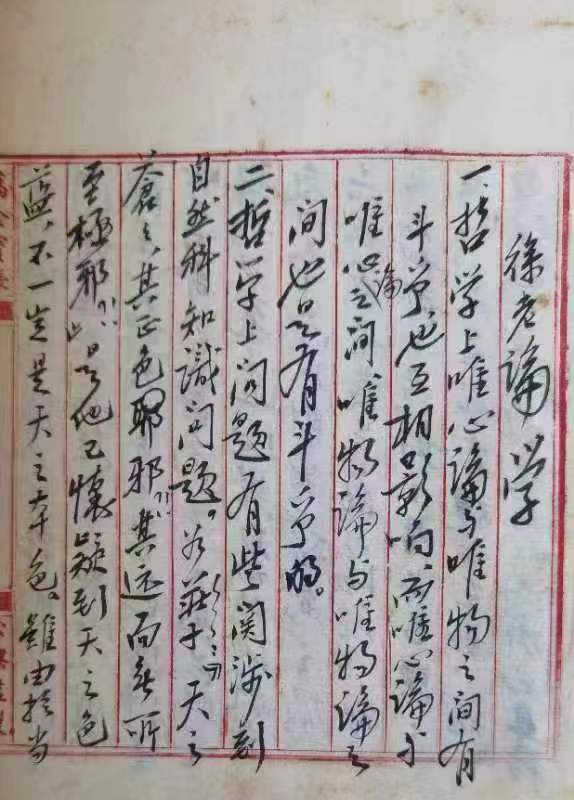 徐老論学
一、哲学上唯心論与唯物之间有
斗争，也互相影响，而唯心論与
唯心論之间，唯物論与唯物論之
间也是有斗争的。
二、哲学上问题有些関涉到
自然科知識问题。如莊子：天之
蒼々，其正色耶邪？其远而無所
至極邪？此是他已懷疑到天之色
蓝，不一定是天之本色。雖由於当